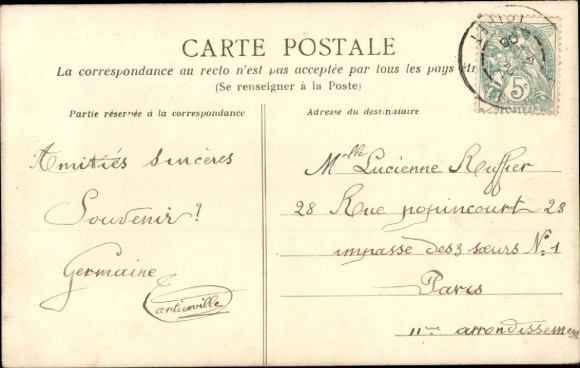 CARTE POSTALE
La correspondance au recto n'est pas acceptée par tous les pays étr
(Se renseigner à la Poste)
Partie réservée à la correspondance
Adresse du destinataire
Amitiés sincères
Souvenir ?
Germaine
Melle Lucienne Ruffier
28 Rue popincourt 28
impasse des 3 sœurs No 1
Paris
11me arrondissement
5c